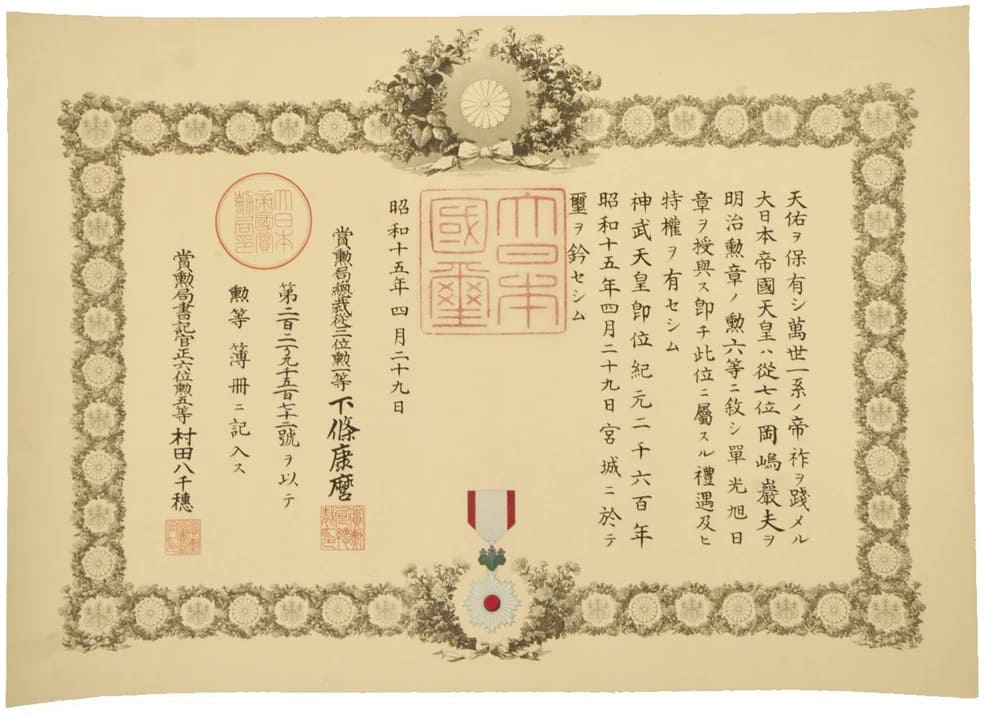 天佑ヲ保有シ萬世一系ノ帝祚ヲ踐メル
大日本帝國天皇ハ從七位岡嶋巖夫ヲ
明治勲章ノ勲六等ニ敘シ單光旭日
章ヲ授與ス卽チ此位ニ屬スル禮遇及ヒ
特權ヲ有セシム
神武天皇卽位紀元二千六百年
昭和十五年四月二十九日宮城ニ於テ
璽ヲ鈐セシム
大日本
國璽
昭和十五年四月二十九日
賞勲局總裁從三位勲一等下條康麿
第二百二万九千五百七十二號ヲ以テ
勲等簿冊ニ記入ス
大日本
帝國賞
勲局印
賞勲局書記官正六位勲五等村田八千穗